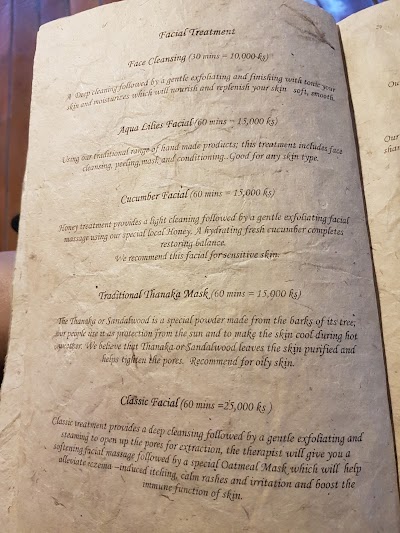 Facial Treatment
Face Cleansing (30 mins = 10,000 ks)
A Deep cleaning followed by a gentle exfoliating and finishing with tonic your
skin and moisturizes which will nourish and replenish your skin soft, smooth.
Aqua Lilies Facial (60 mins = 15,000 ks)
Using our traditional range of hand made products; this treatment includes face
cleansing, peeling, mask and conditioning..Good for any skin type.
Cucumber Facial (60 mins = 15,000 ks)
Honey treatment provides a light cleaning followed by a gentle exfoliating facial
massage using our special local Honey. A hydrating fresh cucumber completes
restoring balance.
We recommend this facial for sensitive skin.
Traditional Thanaka Mask (60 mins = 15,000 ks)
The Thanaka or Sandalwood is a special powder made from the barks of its tree;
our people use it as protection from the sun and to make the skin cool during hot
weather. We believe that Thanaka or Sandalwood leaves the skin purified and
helps tighten the pores. Recommend for oily skin.
Classic Facial (60 mins =25,000 ks )
Classic treatment provides a deep cleansing followed by a gentle exfoliating and
steaming to open up the pores for extraction, the therapist will give you a
softening facial massage followed by a special Oatmeal Mask which will help
alleviate eczema –induced itching, calm rashes and irritation and boost the
immune function of skin.
Ou
Our
shar